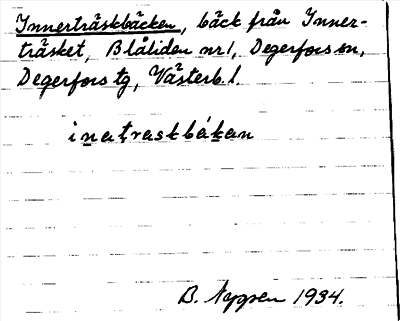 Innerträskbäcken, bäck från Inner-
träsket, Blåliden nr 1, Degerfors sn,
Degerfors tg, Västerb. l.
inatraskbákan
B. 1934.